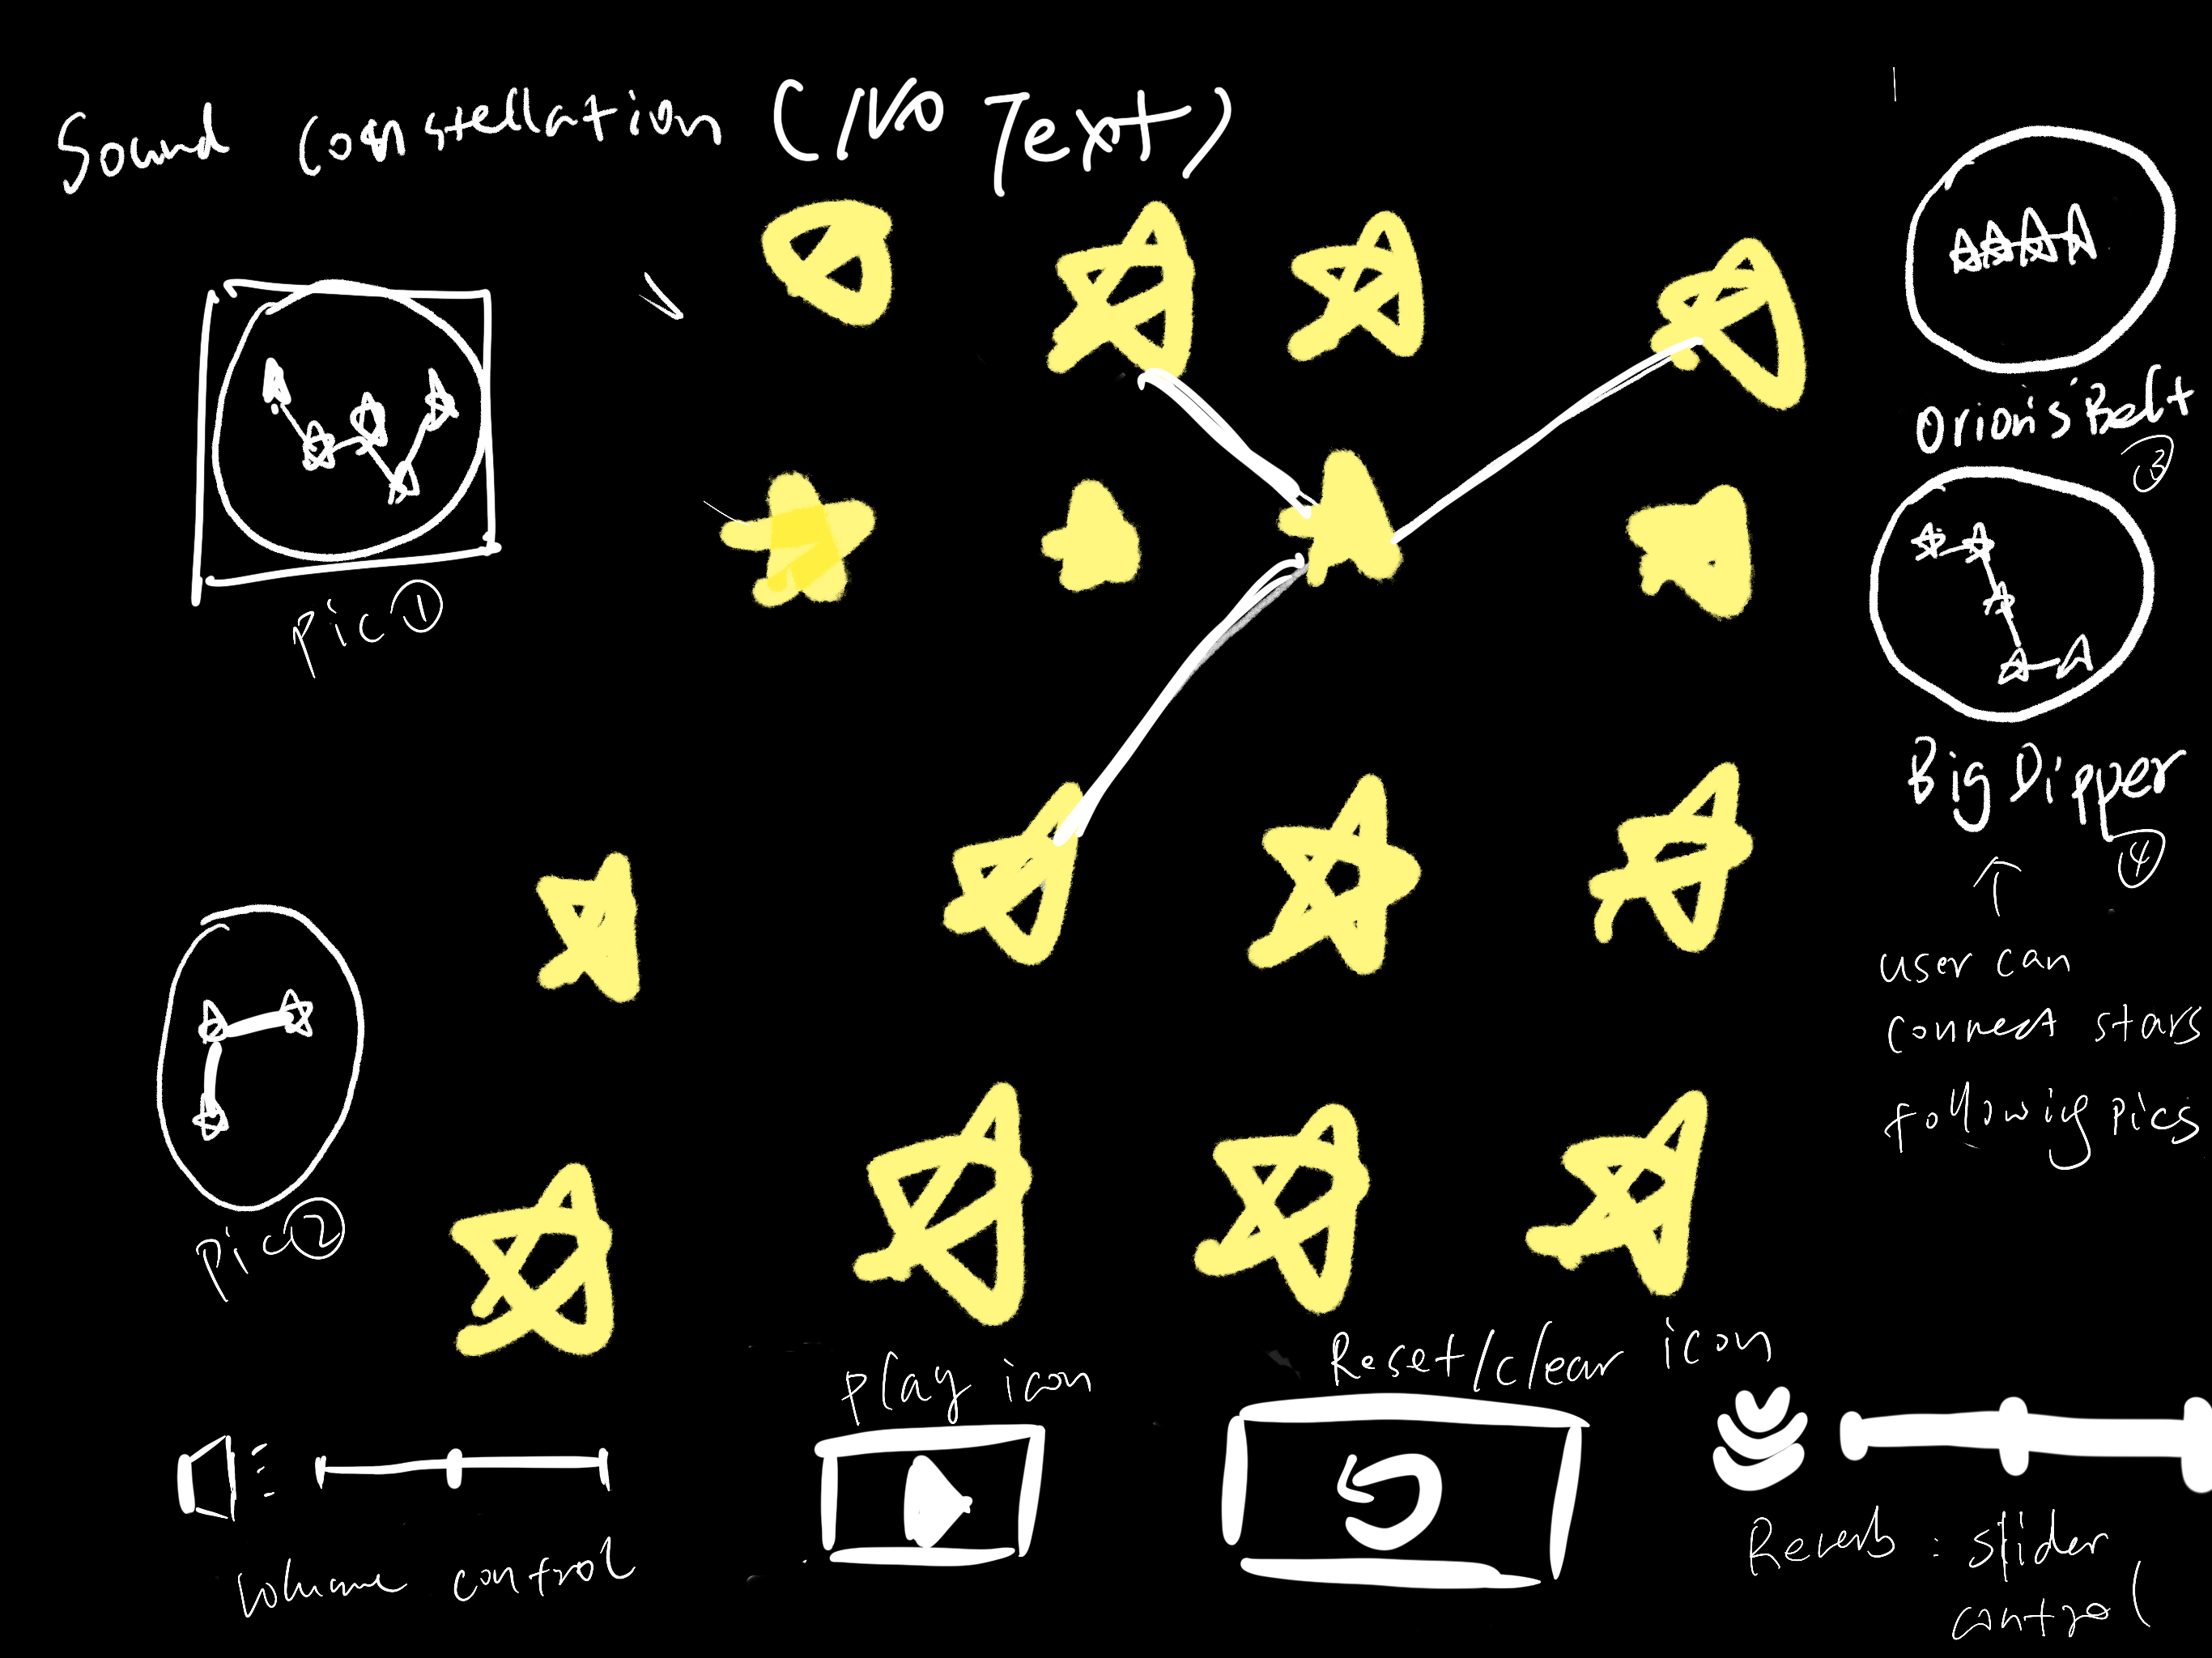 Sound Constellation (No Text)
Orion's Belt
③
Pic ①
Big Dipper
④
user can
connect stars
following pics
Pic ②
Play icon
Reset/clear icon
Volume control
Reverb: slider
control